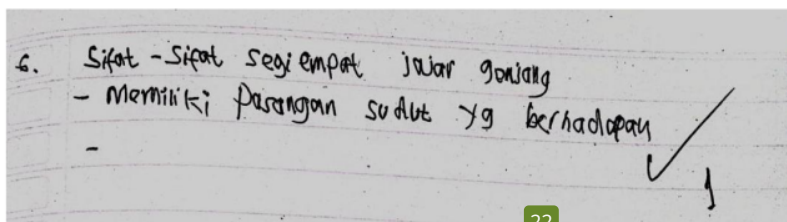 6. Sifat - Sifat segi empat jajar gonjang
- Memiliki Pasangan sudut yg berhadapan
-
1
22